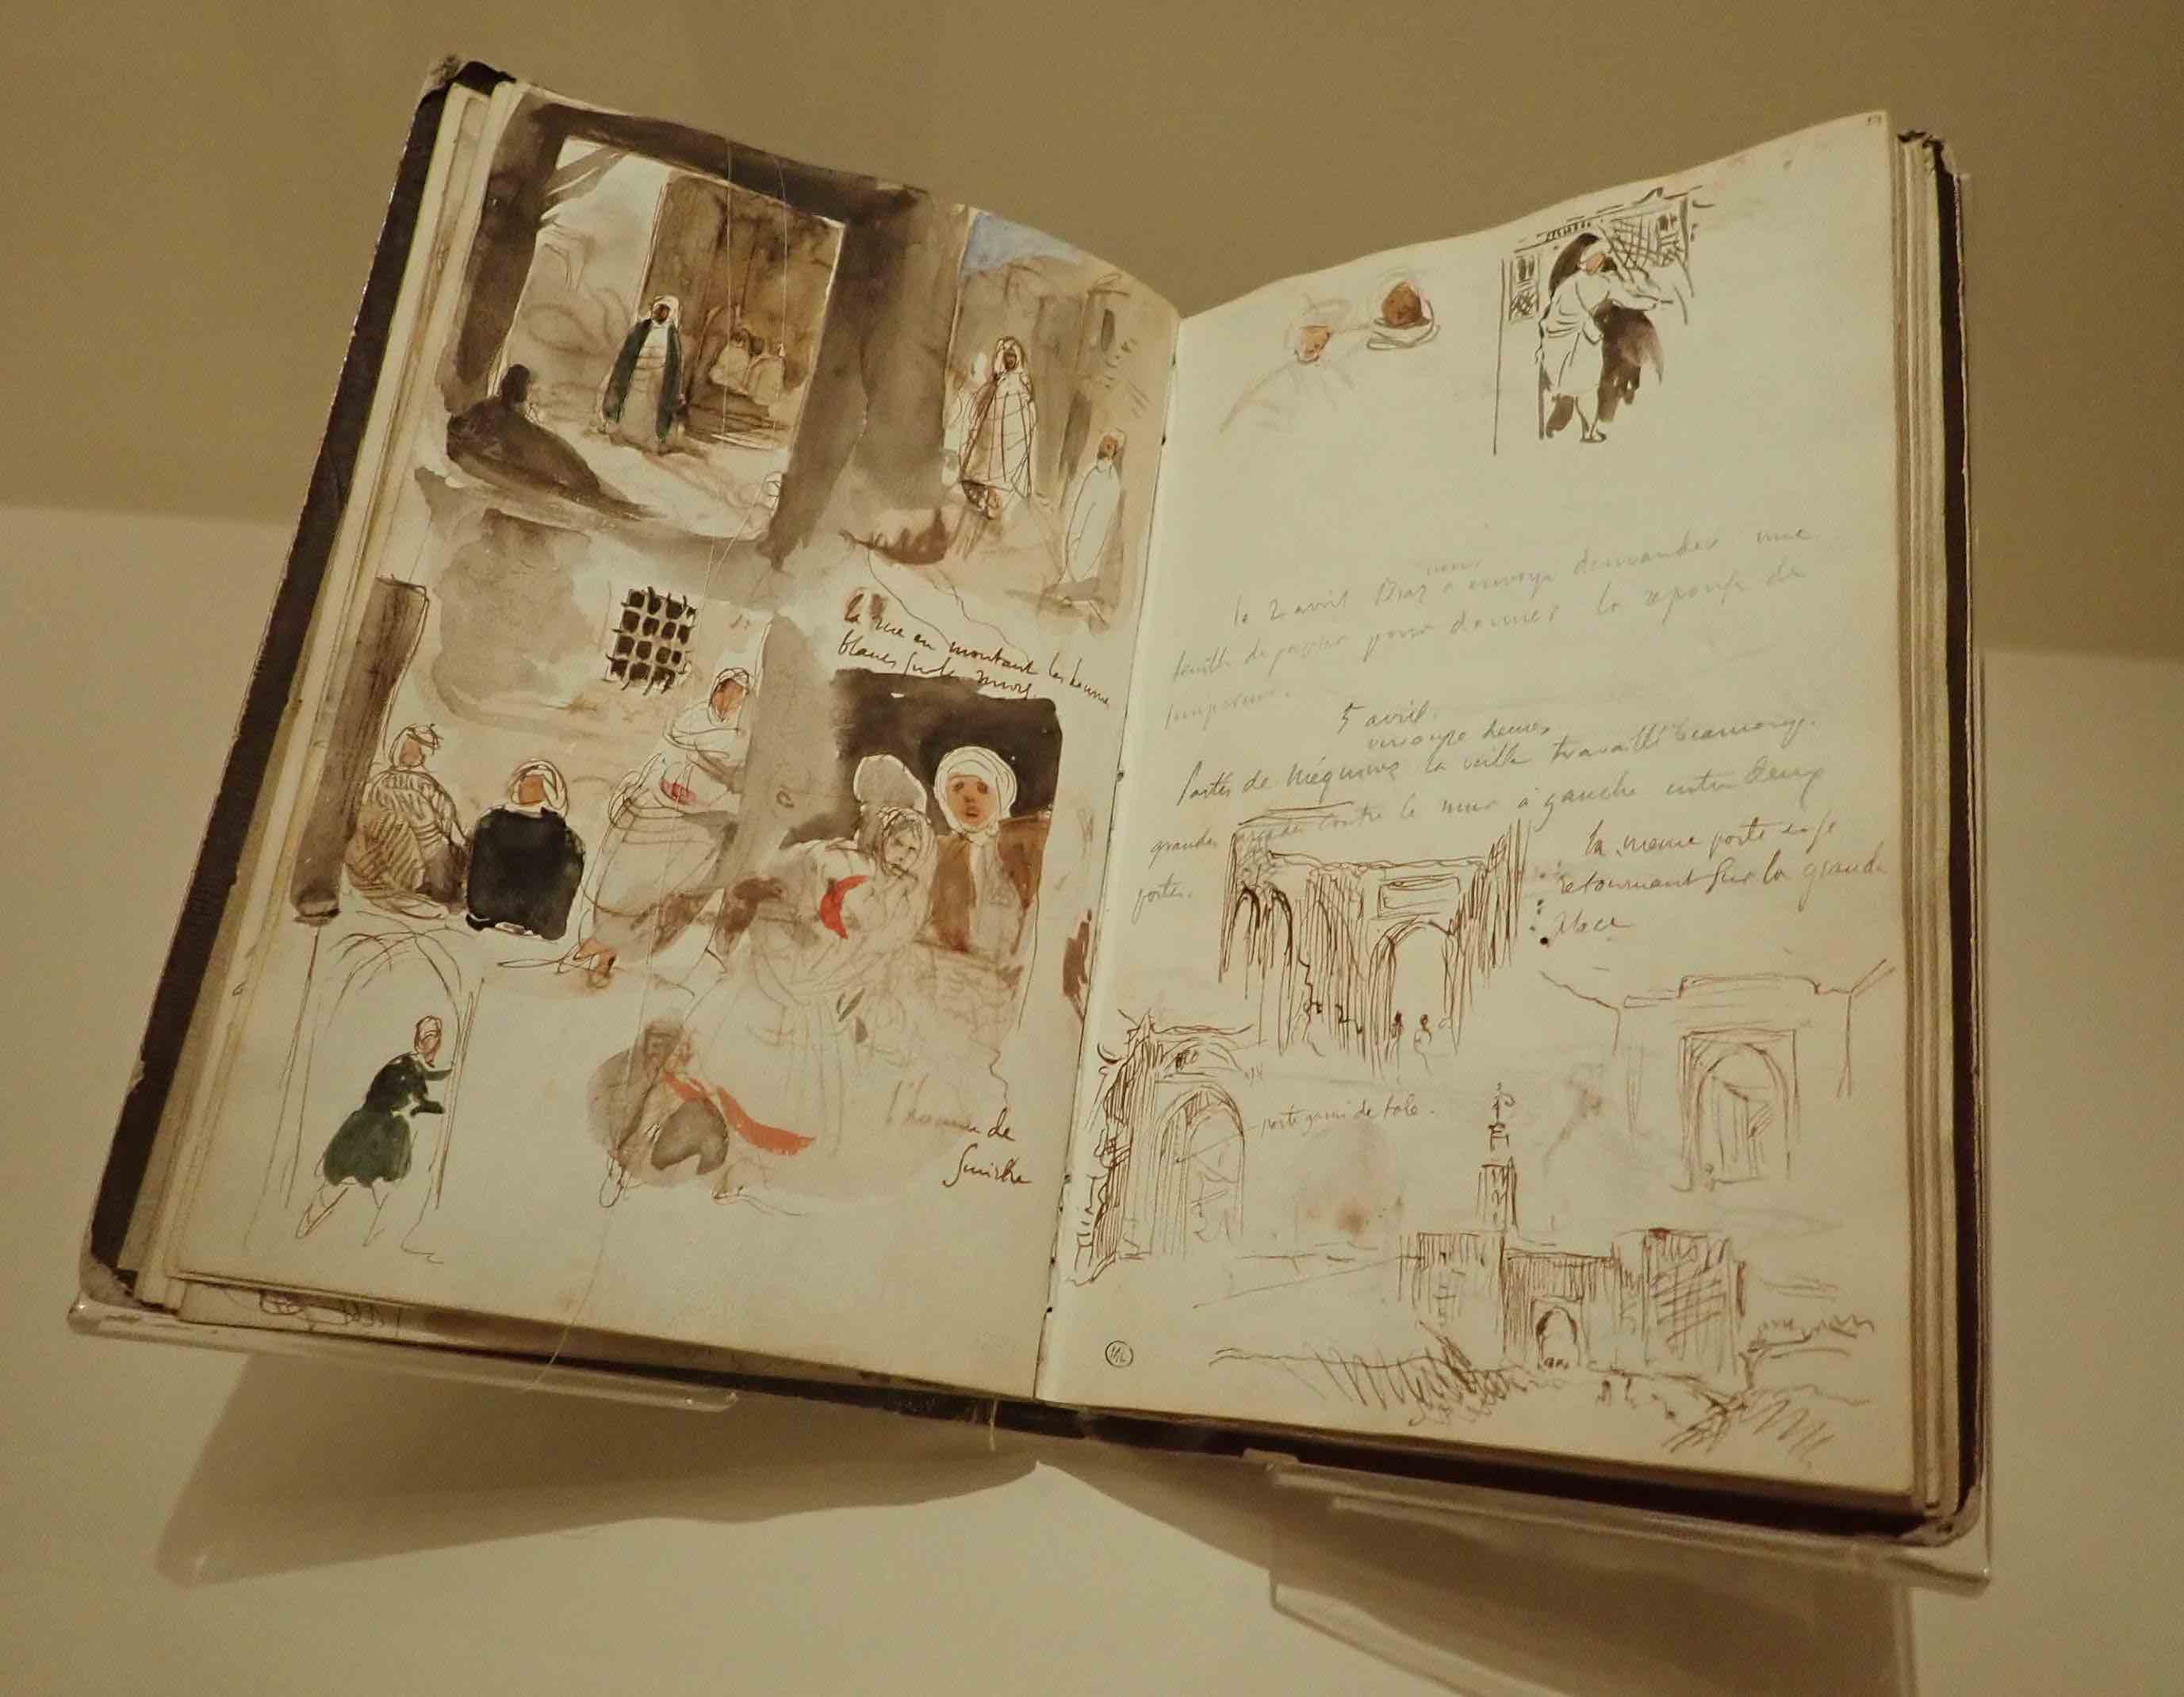 la rue en montant les hommes
blancs sur les murs.
l'homme de
Smirke
le 2 avril Braz a envoyé demander une
feuille de papier pour donner la reponse de
l'empereur.
5 avril.
vers onze heures
Partis de Méquinez la veille travaillé beaucoup.
grandes contre le mur à gauche entre deux
portes.
la meme porte en se
retournant sur la grande
place
porte garni de tole.
ML